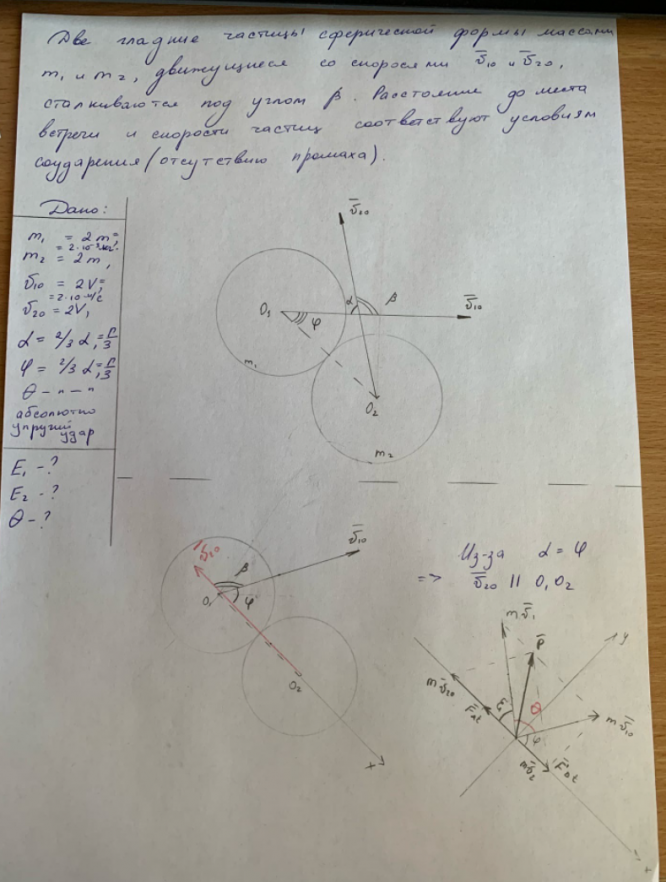 Две гладкие частицы сферической формы массами
m₁ и m₂, движущиеся со скоросями v̅₁₀ и v̅₂₀,
сталкиваются под углом β. Расстояние до места
встречи и скорости частиц соответствуют условиям
соударения (отсутствию промаха).
Дано:
m₁ = 2m =
m₂ = 2m,
v̅₁₀ = 2V₁=
=2·10 м/с
v̅₂₀ = 2V,
α = 2/3 α, =π/3
φ = 2/3 α, π/3
θ - " - "
абсолютно
упругий
удар
E₁ - ?
E₂ - ?
θ - ?
v̅₂₀
O₁
φ
α
β
v̅₁₀
m₁
O₂
m₂
v̅₂₀
β
v̅₁₀
O₁
φ
O₂
x
Из-за α = φ
=> v̅₂₀ || O₁O₂
mv̅₁
p̅
y
mv̅₂₀
F̅Δt
θ
mv̅₁₀
φ
mv̅₂
F̅Δt
x